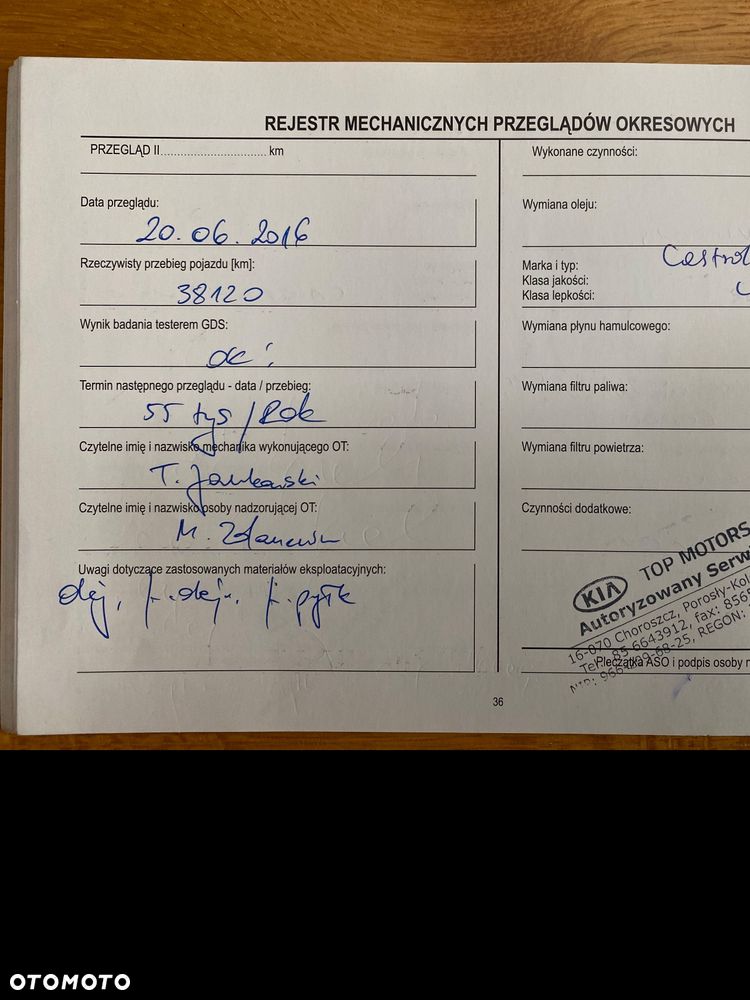 REJESTR MECHANICZNYCH PRZEGLĄDÓW OKRESOWYCH
PRZEGLĄD II.............................. km
Data przeglądu:
20.06.2016
Rzeczywisty przebieg pojazdu [km]:
38120
Wynik badania testerem GDS:
Termin następnego przeglądu - data / przebieg:
55 tys / Rok
Czytelne imię i nazwisko mechanika wykonującego OT:
T. Jankowski
Czytelne imię i nazwisko osoby nadzorującej OT:
M.
Uwagi dotyczące zastosowanych materiałów eksploatacyjnych:
olej, f. olej., f. pyłk
Wykonane czynności:
Wymiana oleju:
Marka i typ: Castrol
Klasa jakości:
Klasa lepkości:
Wymiana płynu hamulcowego:
Wymiana filtru paliwa:
Wymiana filtru powietrza:
Czynności dodatkowe:
KIA TOP MOTORS
Autoryzowany Serw
16-070 Choroszcz, Porosły-Kol
Tel. 85 6643912, fax: 856
NIP: 966 68-25, REGON:
Pieczątka ASO i podpis osoby
36
OTOMOTO